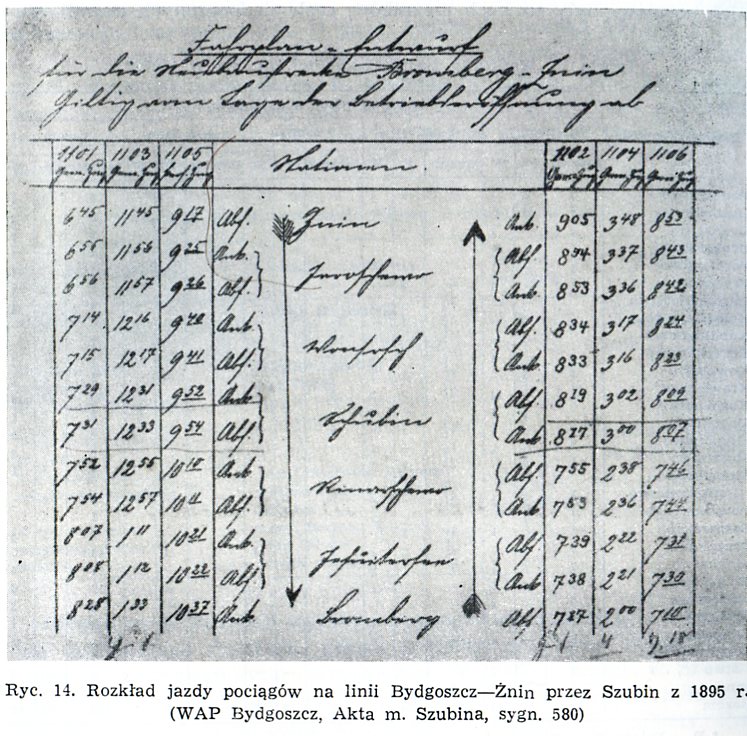 Fahrplan-Entwurf
für die Neubaustrecke Bromberg-Znin
Giltig vom Tage der Betriebseröffnung ab
1101 1103 1105 Stationen. 1102 1104 1106
Gem. Zug Gem. Zug Pers. Zug Gem. Zug Gem. Zug Gem. Zug
6 45 11 45 9 17 Abf. Znin Ank. 9 05 3 48 8 53
6 55 11 56 9 25 Ank. Abf. 8 54 3 37 8 43
Jaroschewo
6 56 11 57 9 26 Abf. Ank. 8 53 3 36 8 42
7 14 12 16 9 40 Ank. Abf. 8 34 3 17 8 24
Wonsosch
7 15 12 17 9 41 Abf. Ank. 8 33 3 16 8 23
7 29 12 31 9 52 Ank. Abf. 8 19 3 02 8 09
Schubin
7 31 12 33 9 54 Abf. Ank. 3 00 8 07
7 52 12 55 10 10 Ank. Abf. 7 55 2 38 7 46
Rinarschewo
7 54 12 57 10 11 Abf. Ank. 7 53 2 36 7 44
8 07 1 11 10 21 Ank. Abf. 7 39 2 22 7 31
Jesuitersee
8 08 1 12 10 22 Abf. Ank. 7 38 2 21 7 30
8 28 1 33 10 37 Ank. Bromberg Abf. 2 00 7 10
Ryc. 14. Rozkład jazdy pociągów na linii Bydgoszcz—Żnin przez Szubin z 1895 r.
(WAP Bydgoszcz, Akta m. Szubina, sygn. 580)